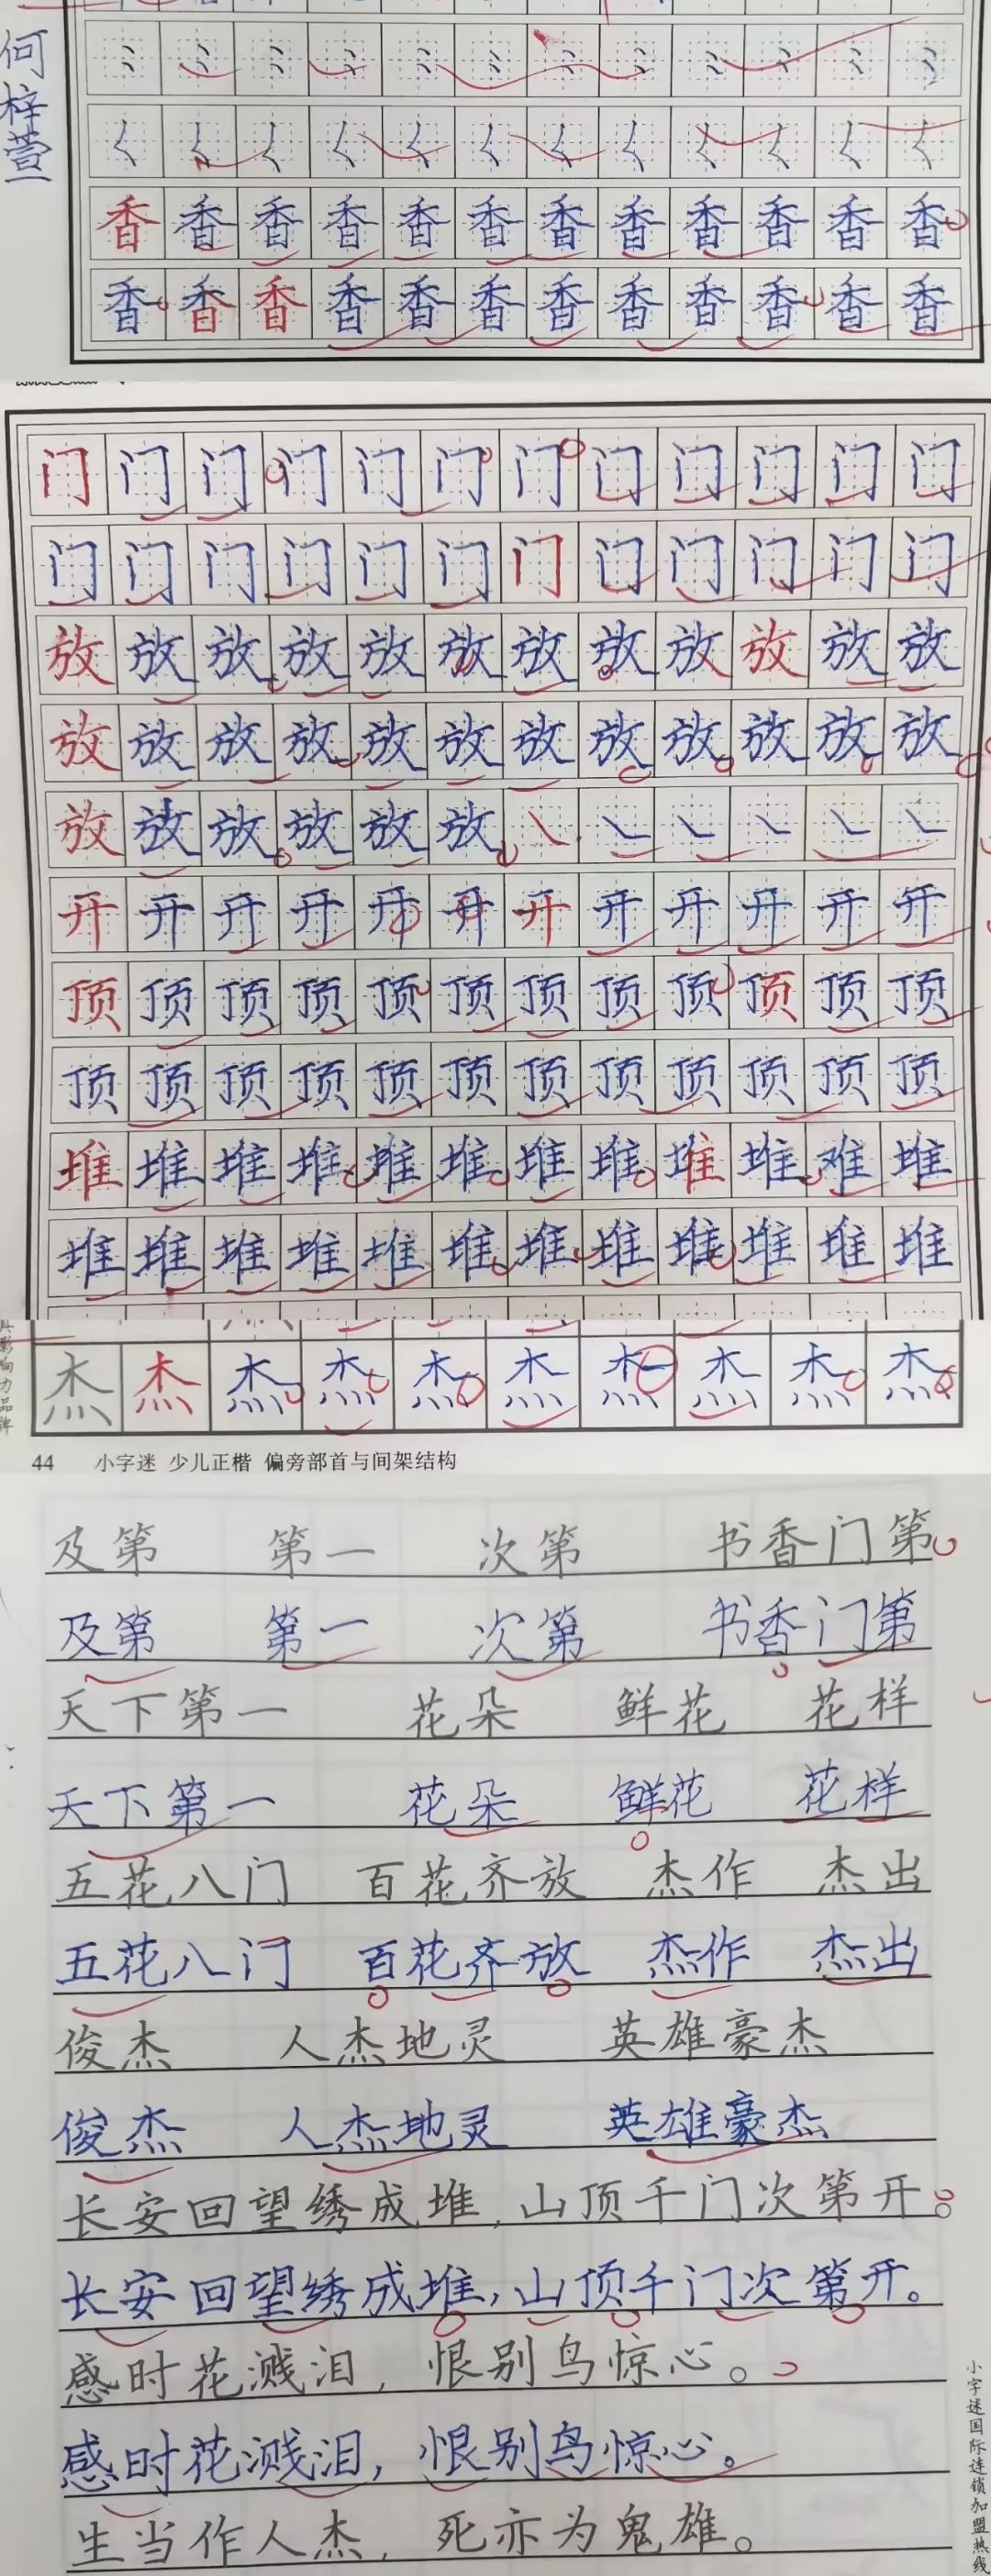 何梓萱
香香香香香香香香香香香香
香香香香香香香香香香香香
门门门门门门门门门门门门
门门门门门门门门门门门门
放放放放放放放放放放放放
放放放放放放放放放放放放
放放放放放放
开开开开开开开开开开开开
顶顶顶顶顶顶顶顶顶顶顶顶
顶顶顶顶顶顶顶顶顶顶顶顶
堆堆堆堆堆堆堆堆堆堆堆堆
堆堆堆堆堆堆堆堆堆堆堆堆
杰杰杰杰杰杰杰杰杰杰
44 小字迷 少儿正楷 偏旁部首与间架结构
及第 第一 次第 书香门第
及第 第一 次第 书香门第
天下第一 花朵 鲜花 花样
天下第一 花朵 鲜花 花样
五花八门 百花齐放 杰作 杰出
五花八门 百花齐放 杰作 杰出
俊杰 人杰地灵 英雄豪杰
俊杰 人杰地灵 英雄豪杰
长安回望绣成堆,山顶千门次第开。
长安回望绣成堆,山顶千门次第开。
感时花溅泪,恨别鸟惊心。
感时花溅泪,恨别鸟惊心。
生当作人杰,死亦为鬼雄。
小字迷国际连锁加盟热线